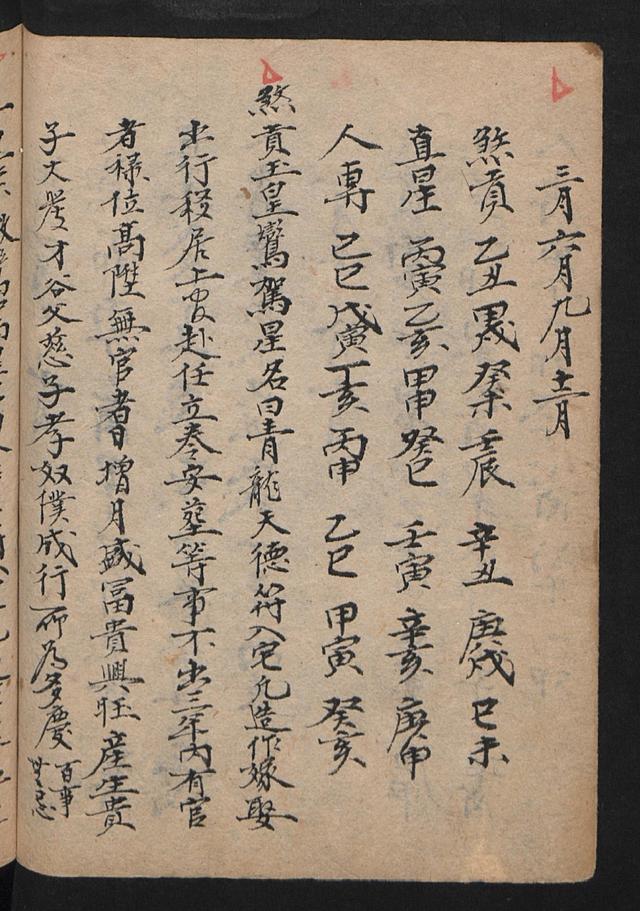 三月六月九月十二月
煞貢 乙丑 甲戌 癸未 壬辰 辛丑 庚戌 己未
直星 丙寅 乙亥 甲申 癸巳 壬寅 辛亥 庚申
人專 己巳 戊寅 丁亥 丙申 乙巳 甲寅 癸亥
煞貢玉皇鸞駕星名曰青龍天德符入宅凡造作嫁娶
出行移居上官赴任立券安塟等事不出三年內有官
者祿位髙陞無官者日增月盛冨貴興旺産生貴
子大發才谷父慈子孝奴僕成行所為多慶百事
無忌